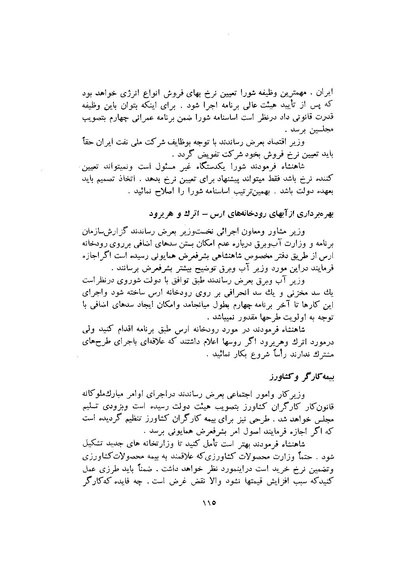 ایران . مهمترین وظیفه شورا تعیین نرخ بهای فروش انواع انرژی خواهد بود
که پس از تأیید هیئت عالی برنامه اجرا شود . برای اینکه بتوان باین وظیفه
قدرت قانونی داد درنظر است اساسنامه شورا ضمن برنامه عمرانی چهارم بتصویب
مجلسین برسد .
وزیر اقتصاد بعرض رساندند با توجه بوظایف شرکت ملی نفت ایران حقاً
باید تعیین نرخ فروش بخود شرکت تفویض گردد .
شاهنشاه فرمودند شورا یکدستگاه غیر مسئول است ونمیتواند تعیین
کننده نرخ باشد فقط میتواند پیشنهاد برای تعیین نرخ بدهد . اتخاذ تصمیم باید
بعهده دولت باشد . بهمین‌ترتیب اساسنامه شورا را اصلاح نمائید .
بهره‌برداری از آبهای رودخانه‌های ارس – اترك و هریرود
وزیر مشاور ومعاون اجرائی نخست‌وزیر بعرض رساندند گزارش‌سازمان
برنامه و وزارت آب‌وبرق درباره عدم امکان بستن سدهای اضافی برروی رودخانه
ارس از طریق دفتر مخصوص شاهنشاهی بشرفعرض همایونی رسیده است اگراجازه
فرمایند دراین مورد وزیر آب وبرق توضیح بیشتر بشرفعرض برسانند .
وزیر آب وبرق بعرض رساندند طبق توافق با دولت شوروی درنظراست
یك سد مخزنی و یك سد انحرافی بر روی رودخانه ارس ساخته شود واجرای
این کارها تا آخر برنامه چهارم بطول میانجامد وامکان ایجاد سدهای اضافی با
توجه به اولویت طرحها مقدور نمیباشد .
شاهنشاه فرمودند در مورد رودخانه ارس طبق برنامه اقدام کنید ولی
درمورد اترك وهریرود اگر روسها اعلام داشتند که علاقه‌ای باجرای طرح‌های
مشترك ندارند رأساً شروع بکار نمائید .
بیمه کارگر و کشاورز
وزیرکار وامور اجتماعی بعرض رساندند دراجرای اوامر مبارك‌ملوکانه
قانون‌کار کارگران کشاورز بتصویب هیئت دولت رسیده است وبزودی تسلیم
مجلس خواهد شد . طرحی نیز برای بیمه کارگران کشاورز تنظیم گردیده است
که اگر اجازه فرمایند اصول امر بشرفعرض همایونی برسد .
شاهنشاه فرمودند بهتر است تأمل کنید تا وزارتخانه های جدید تشکیل
شود . حتماً وزارت محصولات کشاورزی‌که علاقمند به بیمه محصولات‌کشاورزی
وتضمین نرخ خرید است دراینمورد نظر خواهد داشت . ضمناً باید طرزی عمل
کنیدکه سبب افزایش قیمتها نشود والا نقض غرض است . چه فایده که‌کارگر
۱۱۵